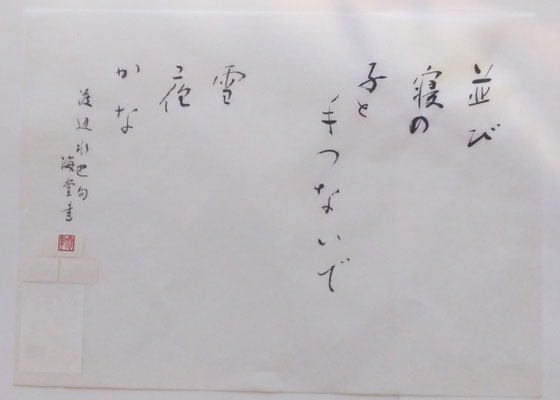 並び
寝の
子と
手つないで
雪
夜
かな
渡辺水巴句
海堂書